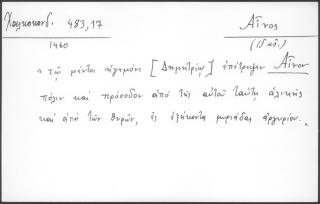 Χαλκοκονδ. 483,17 Αἶνος
1460 (15 αἰ.)
"τῷ μέντοι ἡγεμόνι [Δημητρίῳ] ἐπέτρεψεν Αἶνον
πόλιν καὶ πρόσοδον ἀπὸ τῆς αὐτοῦ ταύτῃ ἁλικῆς
καὶ ἀπὸ τῶν θυρῶν, ἐς ἑξήκοντα μυριάδας ἀργυρίου.